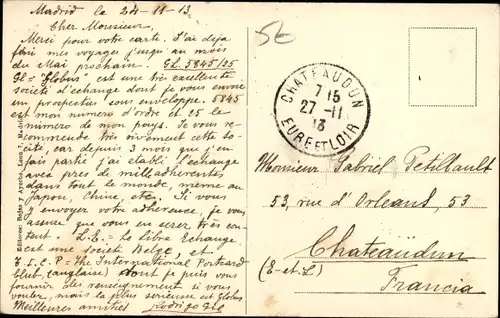 Madrid le 24-11-13
Cher Monsieur,
Merci pour votre carte. J'ai deja
fini mes voyages jusqu'au mois
du Mai prochain. GL. 5845/25
GL = "Globus" est une très excellente
société d'échange dont je vous envoie
un prospectus sous enveloppe. 5845
est mon numéro d'ordre et 25 le
numéro de mon pays. Je vous re-
commende très vivement cette so-
cité, car depuis 3 mois que j'en
fais partie j'ai etabli l'echange
avec près de mille adherents
dans tout le monde, meme au
Japon, Chine, etc. Si vous
y envoyer votre adherence, je vous
assure que vous en serez très con-
tent. - L.E. = Le libre échange
est une société Belge, et
T.I.C.P = The International Postcard
Club, (anglaise) dont je puis vous
fournir des renseignement si vous
voulez, mais la plus serieuse est Globus
Meilleures amitiés Rodrigo Gil
Editores: Rojas y
5E
CHATEAUDUN
7 15
27 -11
13
EURE ET LOIR
Monsieur Gabriel Petilbault
53, rue d'Orleans, 53
Chateaudun
(E-et-L)
Francia